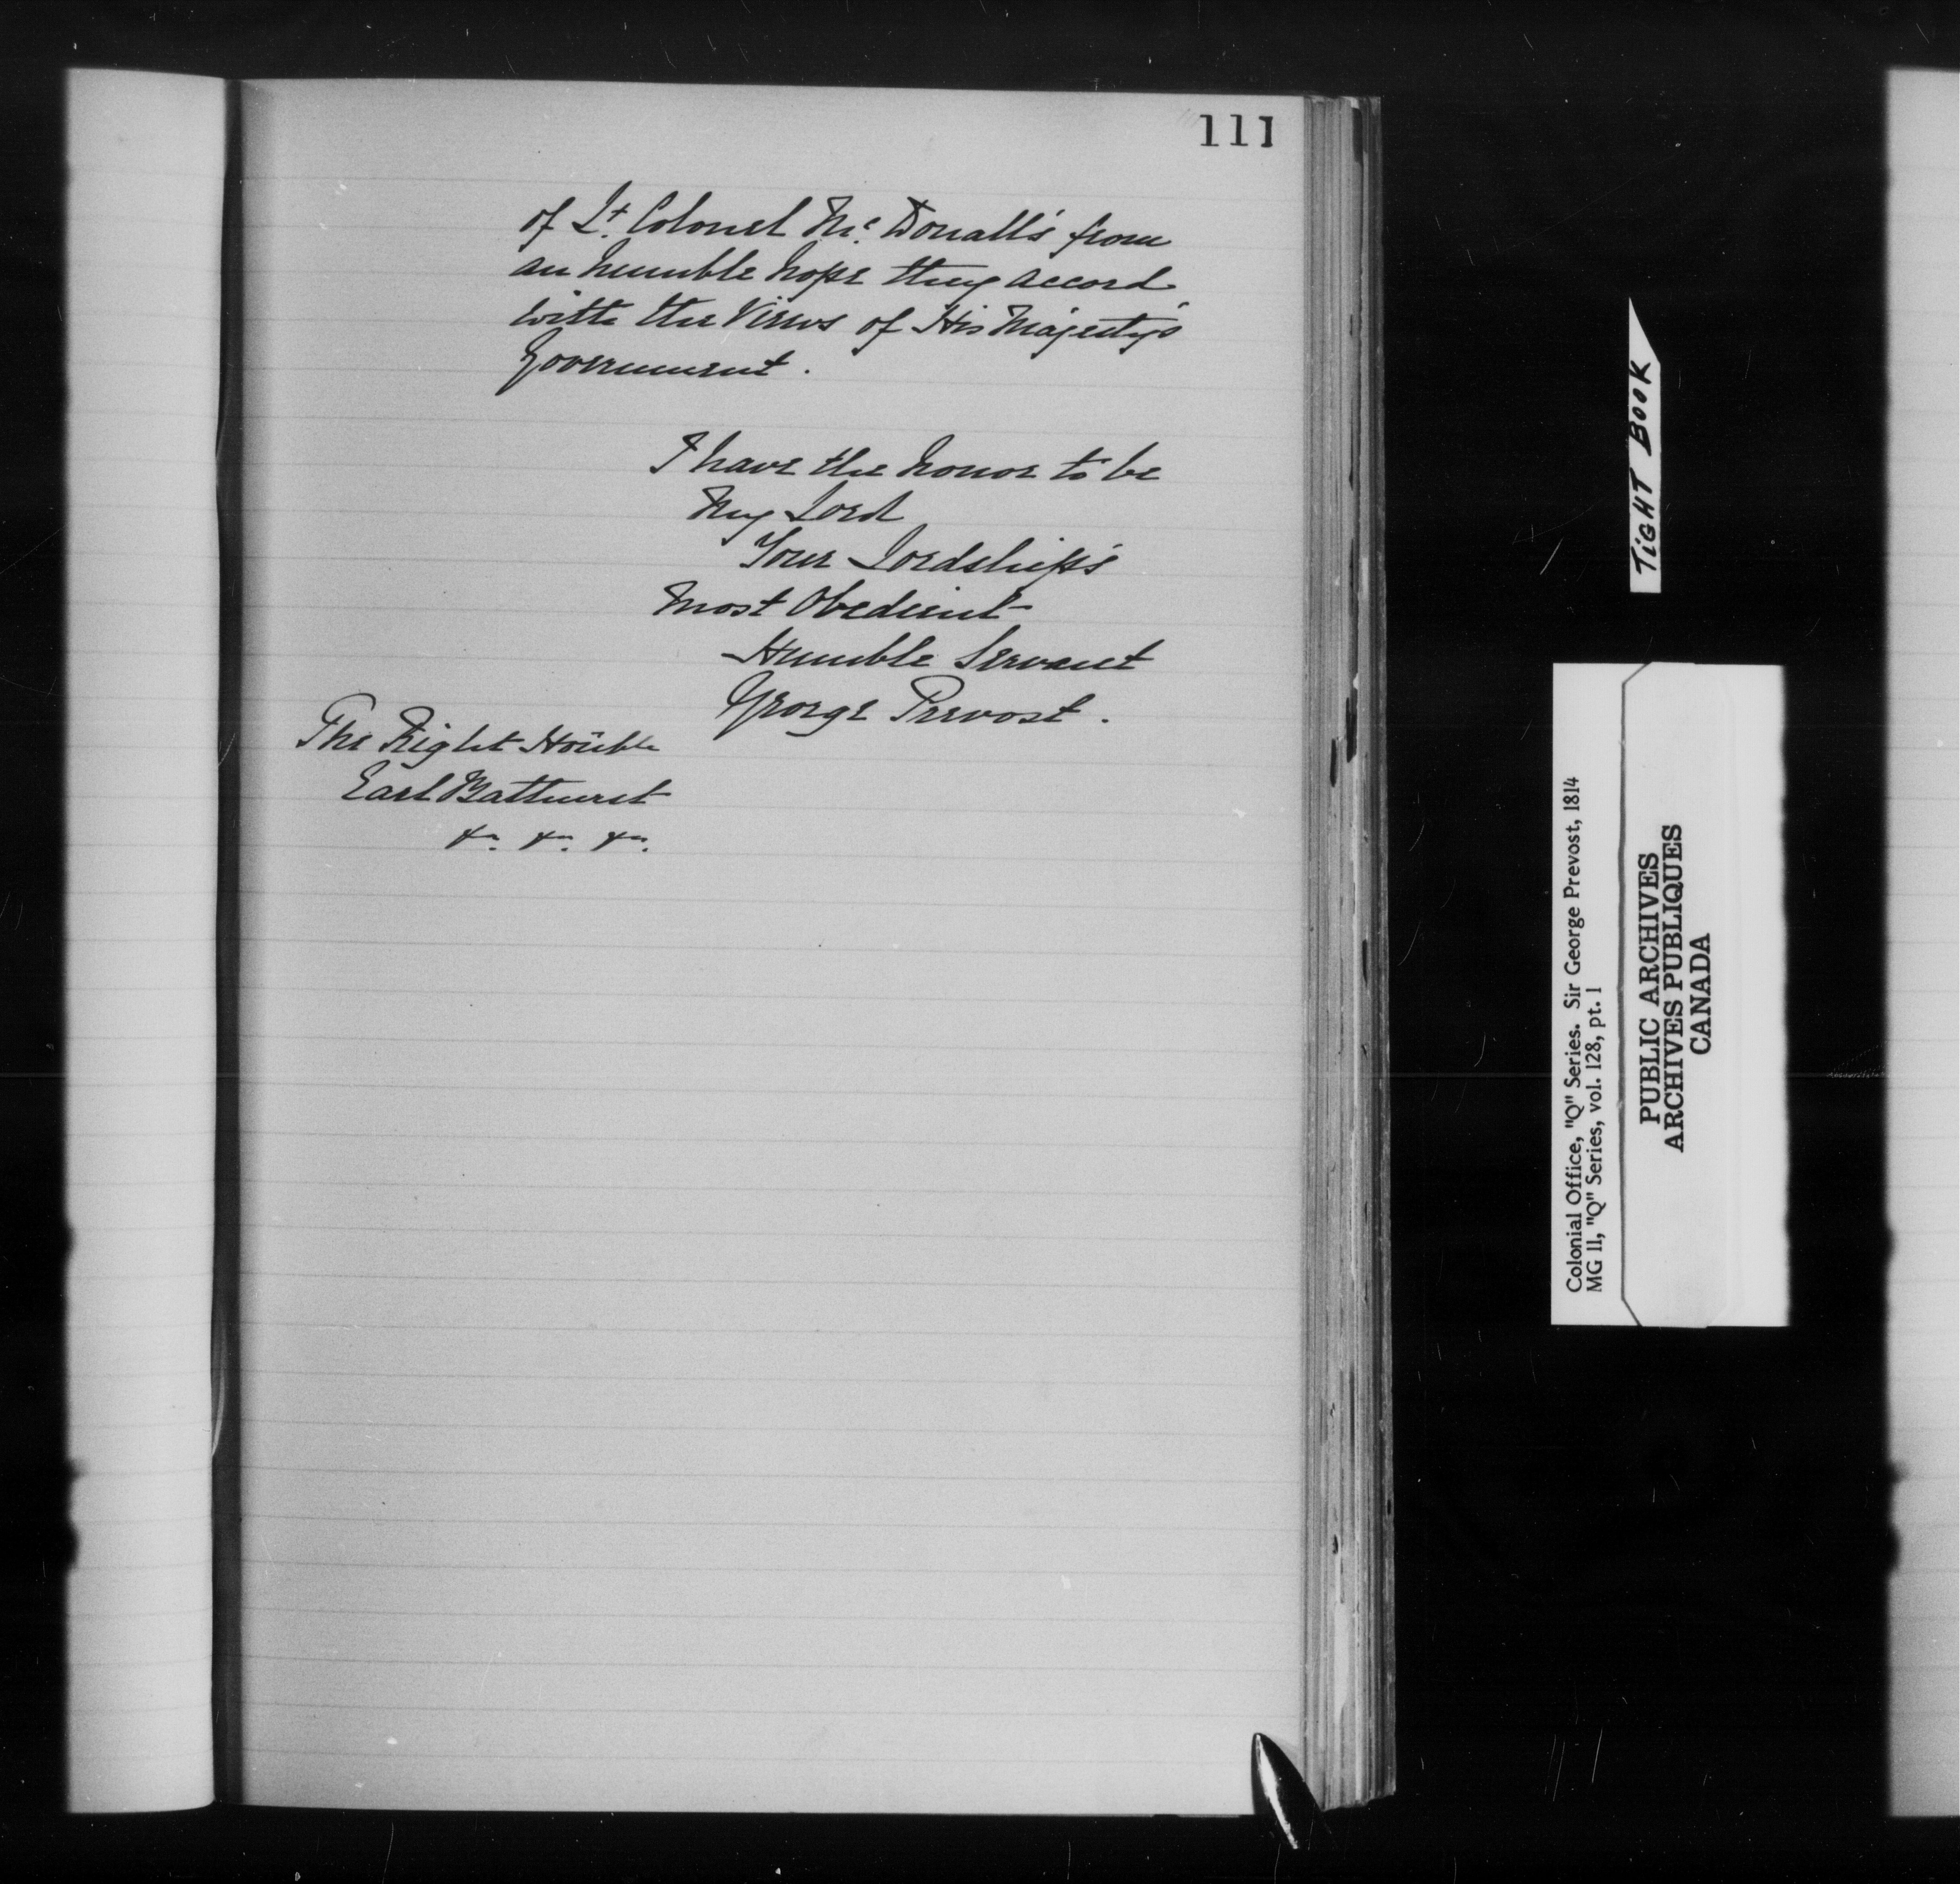 111
of Lt. Colonel Mc. Donall's from
an humble hope they accord
with the Views of His Majesty's
Government.
I have the honor to be
My Lord
Your Lordship's
Most Obedient
Humble Servant
George Prevost.
The Right Honble
Earl Bathurst
&c. &c. &c.
TIGHT BOOK
Colonial Office, "Q" Series. Sir George Prevost, 1814
MG 11, "Q" Series, vol. 128, pt. 1
PUBLIC ARCHIVES
ARCHIVES PUBLIQUES
CANADA